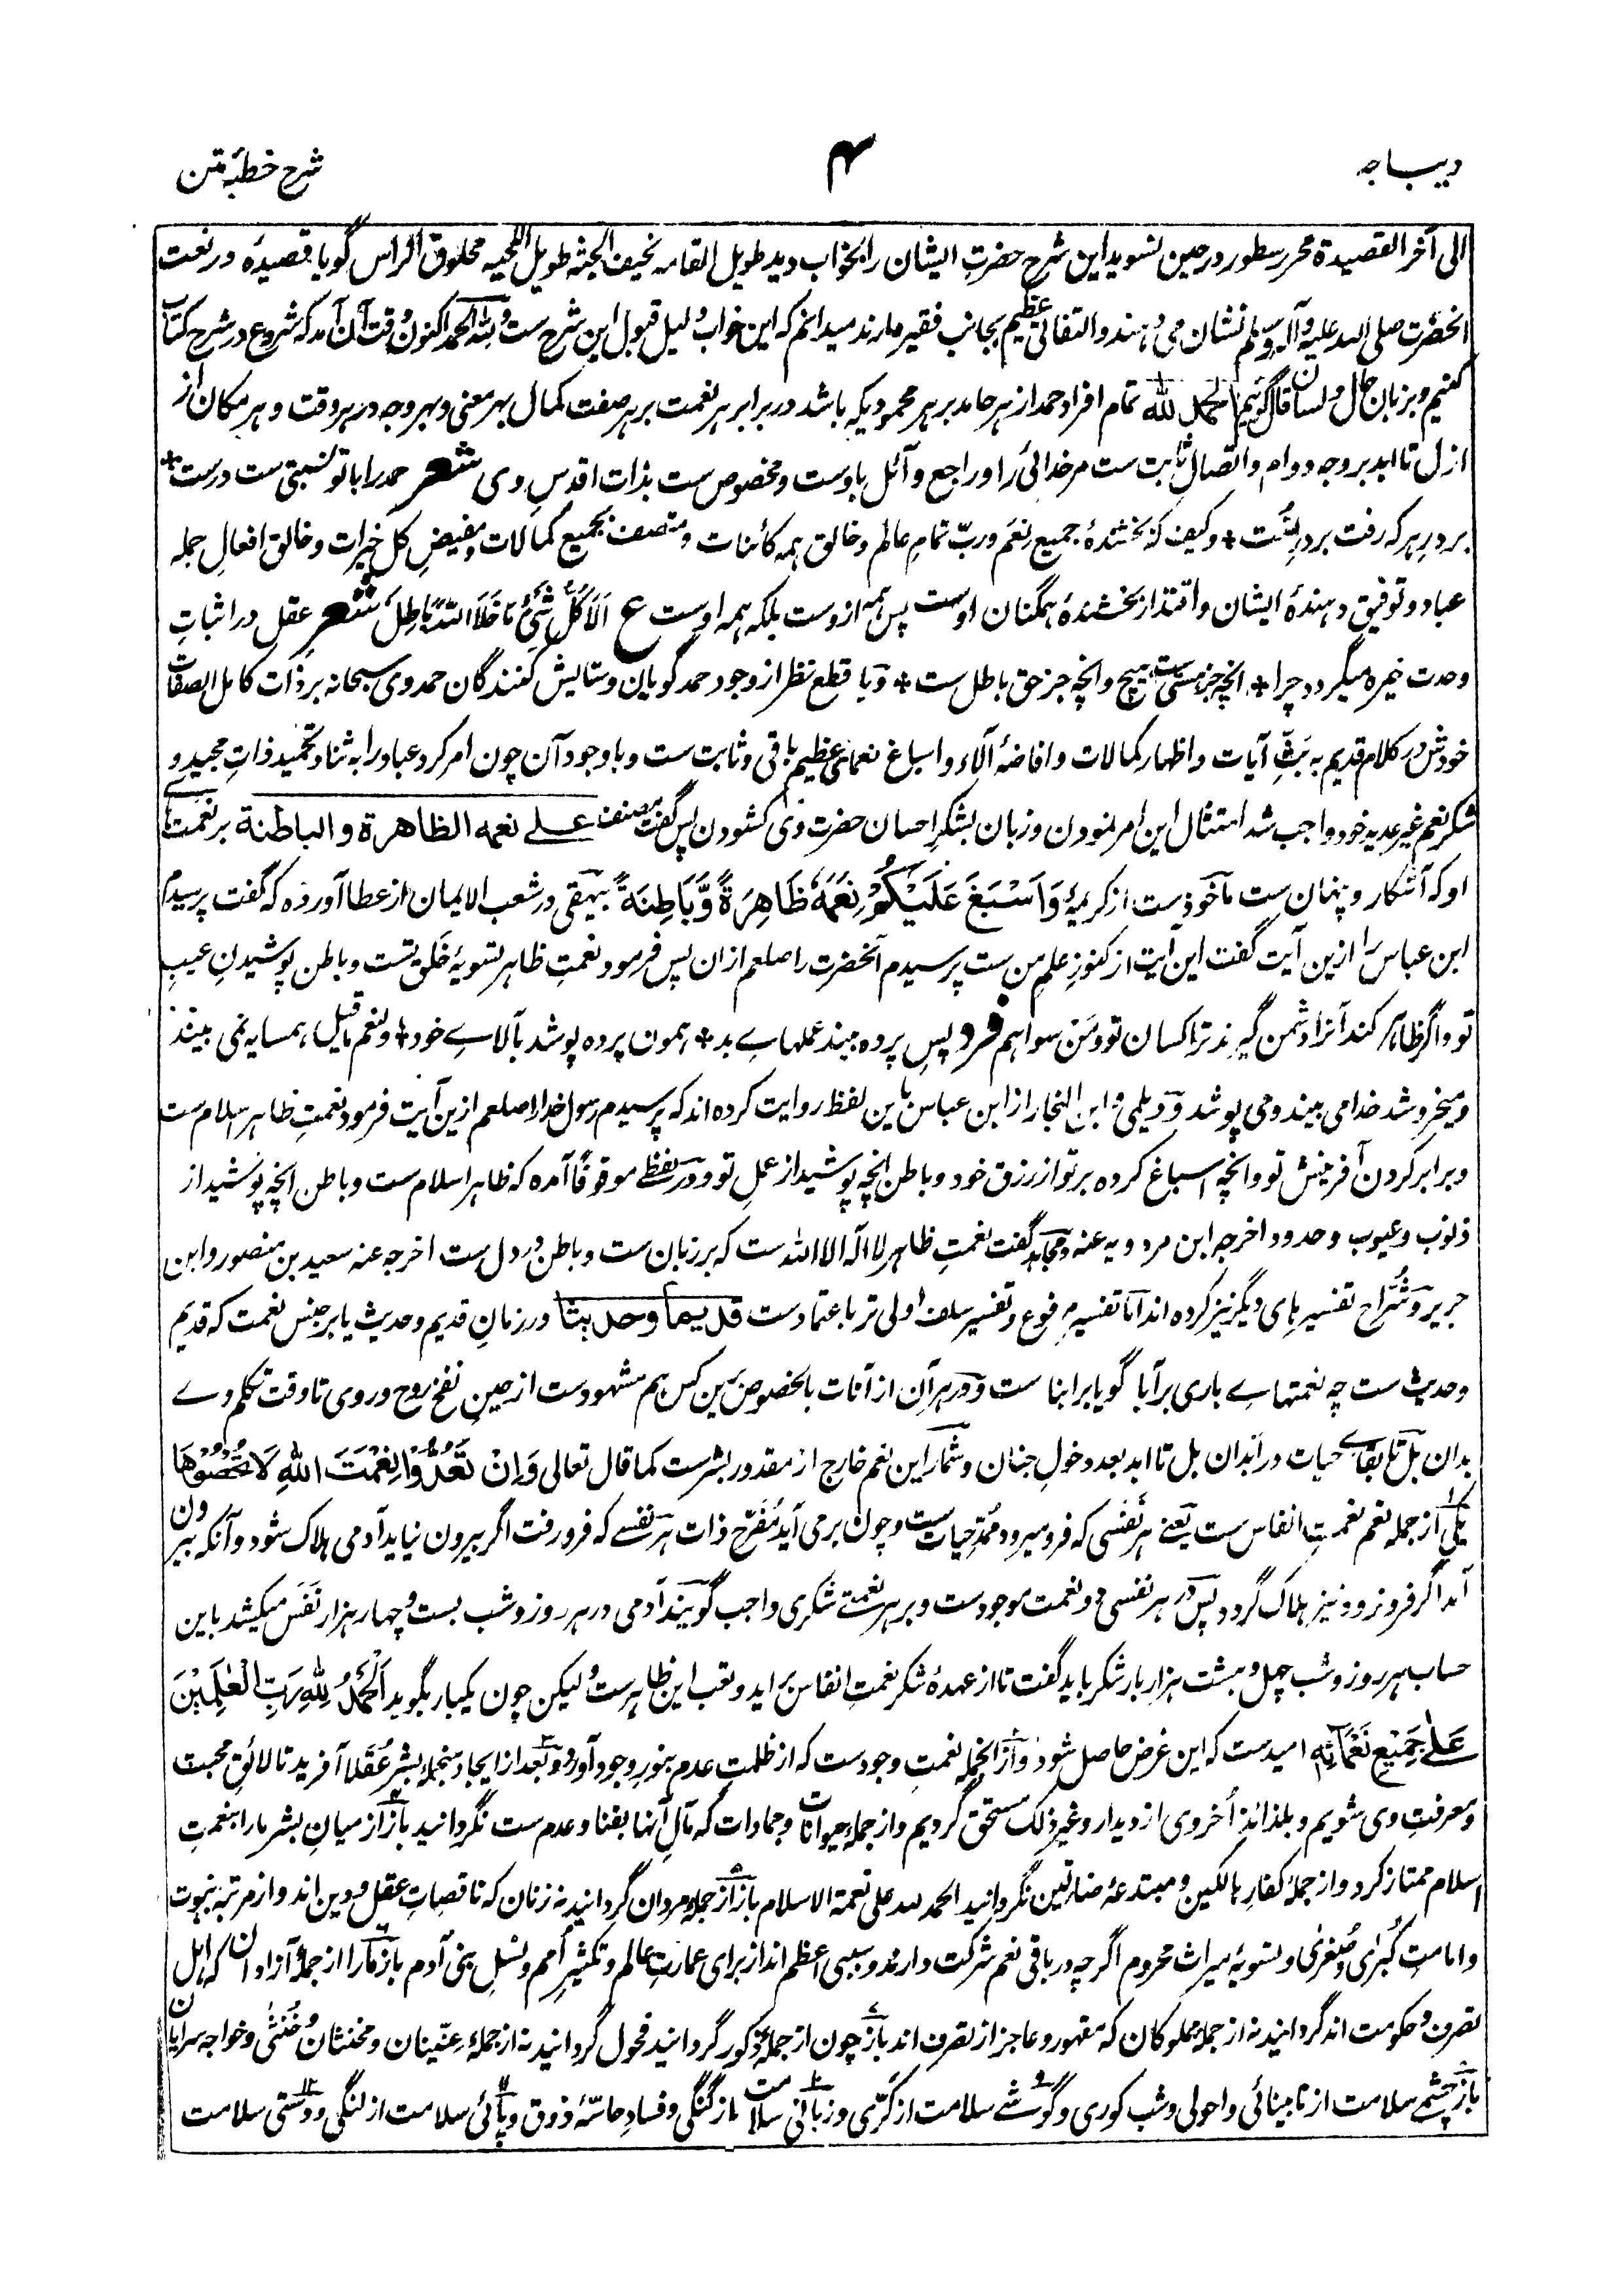 دیباجه
۴
شرح خطبهٔ متن
الی آخر القصیدة محرر سطور در حین تسوید این شرح حضرتِ ایشان را بخواب دید طویل القامه نحیف الجثه طویل اللحیه محلوق الراس گویا قصیدهٔ در نعت
آنحضرت صلی الله علیه وآله وسلم نشان می دهند والتفاتی عظیم بجانب فقیر دارند میدانم که این خواب دلیل قبول این شرح ست ولله الحمد اکنون وقت آن آمد که شروع در شرح کتاب
کنیم و بزبان حال و لسان قال گوئیم الحمد لله تمام افراد حمد از هر حامد بر هر محمودیکه باشد در برابر هر نعمت بر هر صفت کمال بهر معنی و بهر وجه در هر وقت و هر مکان از
ازل تا ابد بر وجه دوام و اتصال ثابت ست مر خدائی را و راجع و آئل باوست و مخصوص ست بذات اقدس وی شعر حمد را با تو نسبتی ست درست *
بر درِ هر که رفت بر درِ تُست * و کیف که بخشندهٔ جمیع نعَم و ربّ تمامِ عالم و خالق همه کائنات و متصف بجمیع کمالات و مفیضِ کل خیرات و خالق افعالِ جمله
عباد و توفیق دهندهٔ ایشان و اقتدار بخشندهٔ همگنان اوست پس همه ازوست بلکه همه اوست ع اَلَا کُلُّ شَیْءٍ مَا خَلَا اللهَ بَاطِلُ شعر عقل در اثباتِ
وحدت خیره میگردد چرا * آنچه جز هستی ست هیچ و آنچه جز حق باطل ست * و با قطع نظر از وجود حمد گویان و ستایش کنندگان حمد وی سبحانه بر ذات کامل الصفات
خودش در کلام قدیم به بَثِّ آیات و اظهار کمالات و افاضهٔ آلاء و اسباغ نعمای عظیم باقی و ثابت ست و با وجود آن چون امر کرد عباد را به ثنا و تحمید ذاتِ مجید و
شکر نعم غیر عدیه خود واجب شد امتثال این امر نمودن و زبان بشکرِ احسان حضرت وی کشودن پس گفت مصنف علے نعمه الظاهرة والباطنة بر نعمتهاے
او که آشکار و پنهان ست ماخوذست از کریمهٔ وَاَسْبَغَ عَلَیْکُمْ نِعَمَهٗ ظَاهِرَةً وَّبَاطِنَةً بیهقی در شعب الایمان از عطا آورده که گفت پرسیدم
ابن عباس را ازین آیت گفت این آیت از کنوزِ علمِ من ست پرسیدم آنحضرت را صلعم ازان پس فرمود نعمتِ ظاهر تسویهٔ خَلق تست و باطن پوشیدنِ عیبِ
تو و اگر ظاهر کند آنرا دشمن گیرند ترا کسان تو و من سواهم فرد پسِ پرده بیند عملهاے بد * همون پرده پوشد بآلاے خود * و نعم ما قیل همسایه نمی بیند
و میخروشد خدا می بیند و می پوشد و دیلمی و ابن النجار از ابن عباس باین لفظ روایت کرده اند که پرسیدم رسول خدا را صلعم ازین آیت فرمود نعمتِ ظاهر اسلام ست
و برابر کردن آفرینش تو و آنچه اسباغ کرده بر تو از رزق خود و باطن آنچه پوشید از عمل تو و در لفظے موقوفا آمده که ظاهر اسلام ست و باطن آنچه پوشید از
ذنوب و عیوب و حدود اخرجه ابن مردویه عنه و مجاهد گفت نعمتِ ظاهر لا اله الا الله ست که بر زبان ست و باطن در دل ست اخرجه عنه سعید بن منصور و ابن
جریر و شُرّاح تفسیرهای دیگر نیز کرده اند اما تفسیر مرفوع و تفسیر سلف اولی تر باعتمادست قدیما وحدیثا در زمانِ قدیم و حدیث یا بر جنس نعمت که قدیم
و حدیث ست چه نعمتهاے باری بر آبا گویا بر ابنا ست و در هر آن از آنات بالخصوص برین کس هم مشهودست از حینِ نفخ روح در وی تا وقت تکلم وے
بدان بل تا بقاے حیات در ابدان بل تا ابد بعد دخولِ جنان و شمار این نعم خارج از مقدور بشرست کما قال تعالی وَاِنْ تَعُدُّوْا نِعْمَتَ اللهِ لَا تُحْصُوْهَا
یکی از جمله نعم نعمتِ انفاس ست یعنے هر نَفَسی که فرو میرود ممد حیات ست و چون بر می آید مُفَرِّح ذات هر نفسے که فرو رفت اگر بیرون نیاید آدمی هلاک شود و آنکه بیرون
آمد اگر فرو نرود نیز هلاک گردد پس در هر نفسی دو نعمت موجودست و بر هر نعمتے شکری واجب گویند آدمی در هر روز و شب بست و چهار هزار نَفَس میکشد باین
حساب هر روز و شب چهل و هشت هزار بار شکر باید گفت تا از عهدهٔ شکر نعمتِ انفاس بر آید و تعب این ظاهرست ولیکن چون یکبار بگوید اَلْحَمْدُ لِلّٰهِ رَبِّ الْعٰلَمِیْنَ
عَلٰے جَمِیْعِ نَعْمَآئِهٖ امیدست که این غرض حاصل شود و از انجمله نعمتِ وجودست که از ظلمتِ عدم بنورِ وجود آورد و بعد از ایجاد منجمله بشر عُقَلا آفرید تا لائقِ محبت
و معرفتِ وی شویم و بلذائذِ اُخروی از دیدار و غیر ذلک مستحق گردیم و از جملهٔ حیوانات و جمادات که مآل آنها بفنا و عدم ست نگردانید باز از میانِ بشر مارا بنعمتِ
اسلام ممتاز کرد و از جملهٔ کفارِ هالکین و مبتدعهٔ ضالین نگردانید الحمد لله علی نعمة الاسلام باز از جملهٔ مردان گردانید نه زنان که ناقصاتِ عقل و دین اند و از مرتبهٔ نبوت
و امامتِ کُبریٰ و صُغریٰ و تسویهٔ میراث محروم اگرچه در باقی نعم شرکت دارند و سببی اعظم اند از برای عمارتِ عالم و تکثیرِ اُمم و نسلِ بنی آدم باز مارا از جملهٔ آزادان که اهل
تصرف و حکومت اند گردانید نه از جملهٔ مملوکان که مقهور و عاجز از تصرف اند باز چون از جملهٔ ذکور گردانید فحول گردانید نه از جملهٔ عِنّینان و مخنثان و خُنثیٰ و خواجه سرایان
باز چشمے سلامت از نابینائی و احولی و شب کوری و گوشے سلامت از کَرّی و زبانی سلامت از گنگی و فسادِ حاسّهٔ ذوق و پائی سلامت از لنگی و دستی سلامت